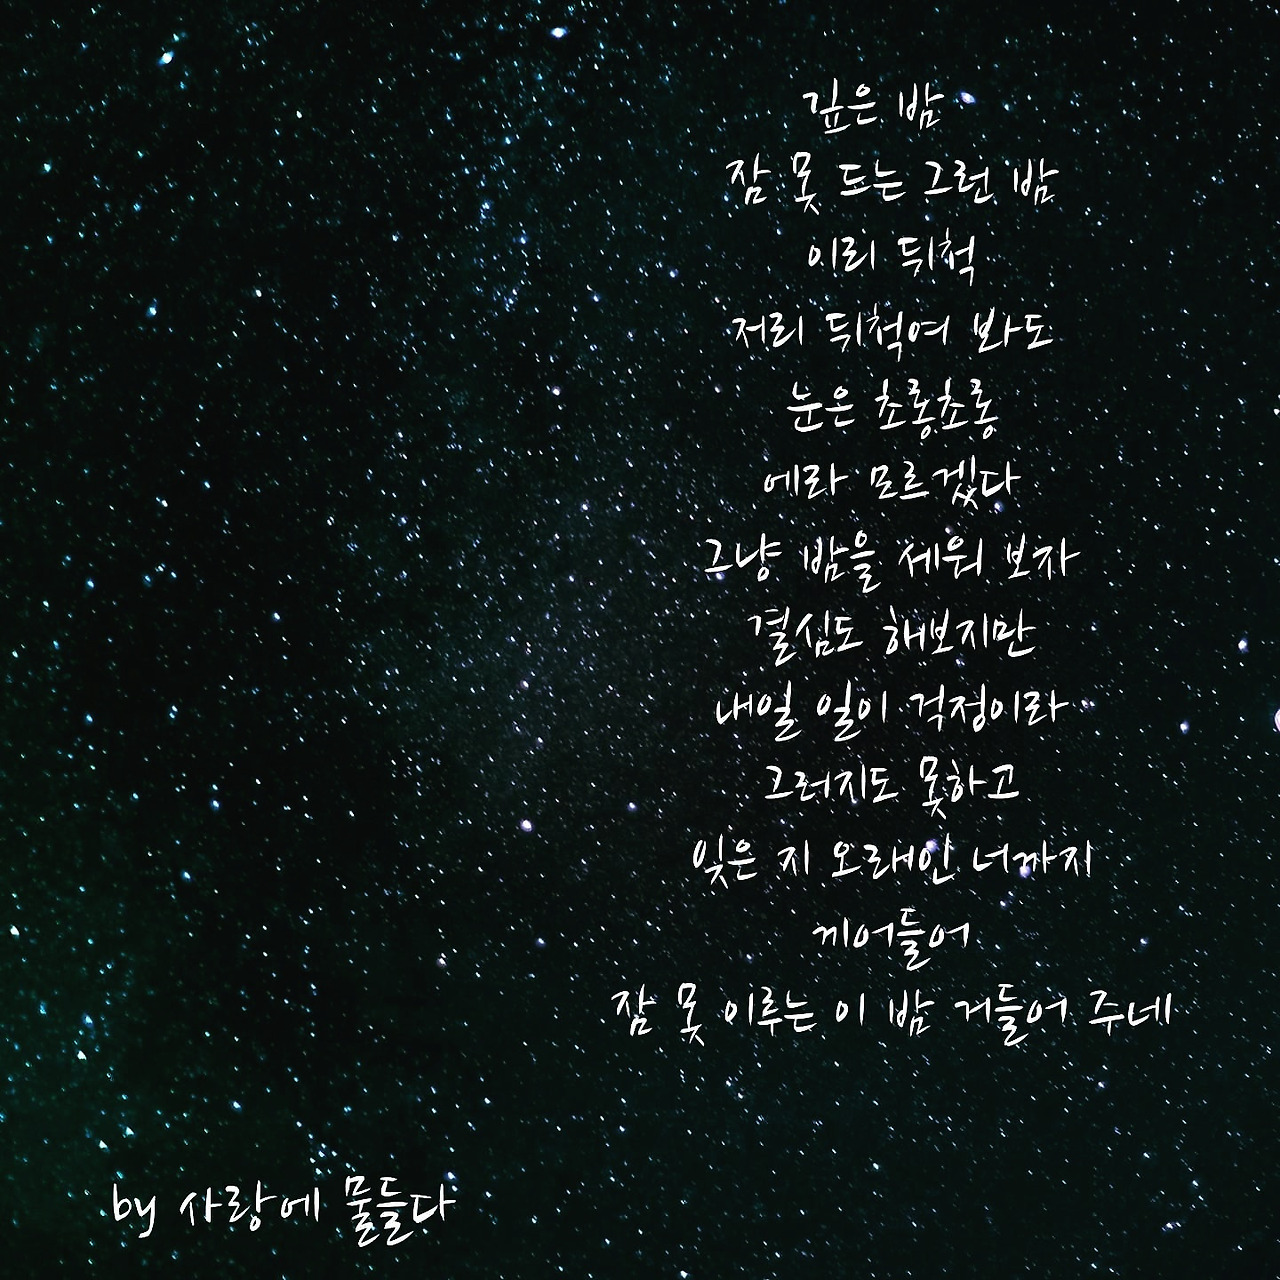 깊은 밤
잠 못 드는 그런 밤
이리 뒤척
저리 뒤척여 봐도
눈은 초롱초롱
에라 모르겠다
그냥 밤을 세워 보자
결심도 해보지만
내일 일이 걱정이라
그러지도 못하고
잊은 지 오래인 너까지
끼어들어
잠 못 이루는 이 밤 거들어 주네
by 사랑에 물들다